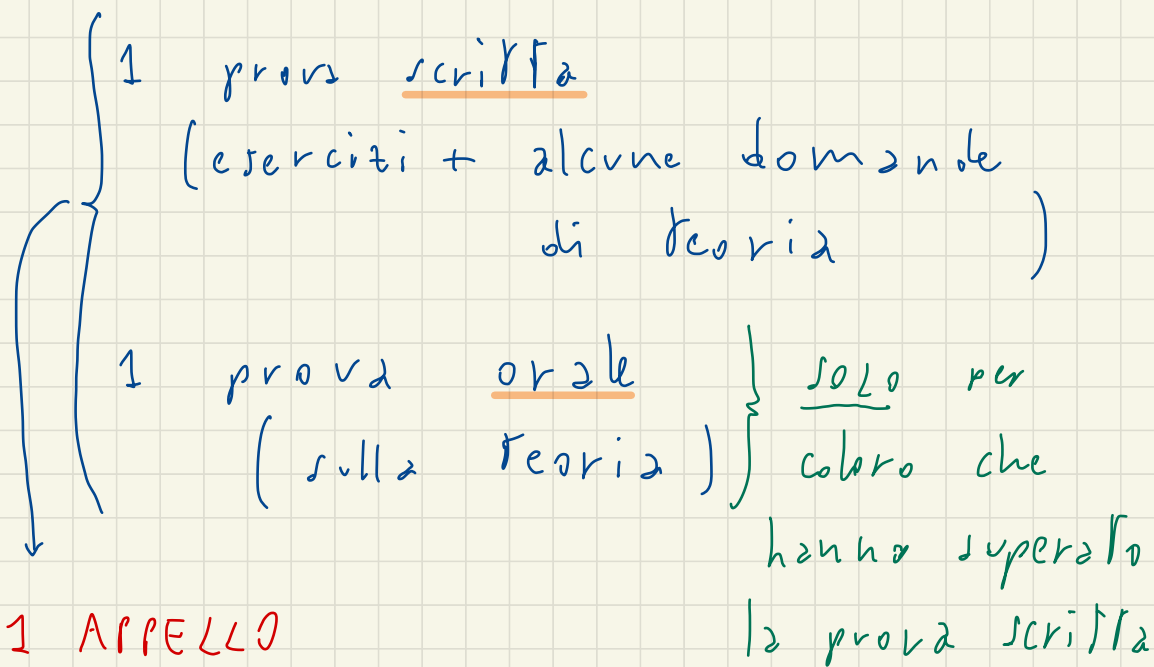 1 prova scritta
(esercizi + alcune domande
di teoria)
1 prova orale
(sulla teoria)
SOLO per
coloro che
hanno superato
la prova scritta
1 APPELLO